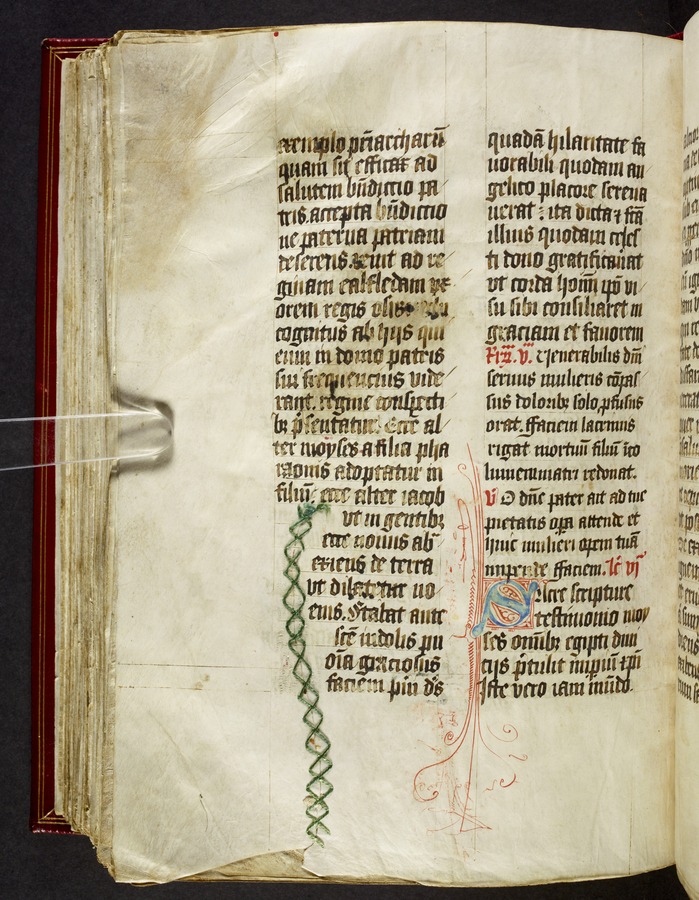 exemplo priarcharū
quam sit efficax ad
salutem bn̄dictio pa
tris. accepta bn̄dictio
ne paterna patriam
deserens. venit ad re
ginam
orem regis
cognitus ab hijs qui
eum in domo patris
sui frequencius vide
rant. regine conspecti
bȝ p̄sentatur. Ecce al
ter moyses a filia pha
raonis adoptatur in
filiū. ecce alter iacob
vt in gentibȝ
ecce nouus ab
exiens de terra
vt dilatetur no
eius. Stabat ante
indolis pu
oīa graciosus
faciem piū dʼs
quadā hilaritate fa
uorabili quodam an
gelico placore serena
uerat : ita dicta ⁊ fc̄a
illius quodam celes
ti dono gratificauat
vt corda hom̄ ip̄o vi
su sibi consiliaret in
graciam et fauorem
v. Venerabilis dn̄i
seruus mulieris cōpas
sus doloribȝ solo ꝓfusus
orat. ffaciem lacrimis
rigat mortuū filiū
matri redonat.
v̄ O dn̄e pater ait ad tue
pietatis oꝑa attende et
huic mulieri opem tuā
impende ffaciem. lc̄ vj
scripture
testimonio moy
ses om̄ibȝ egipti diui
cijs p̄tulit
Iste vero iam mūdo.